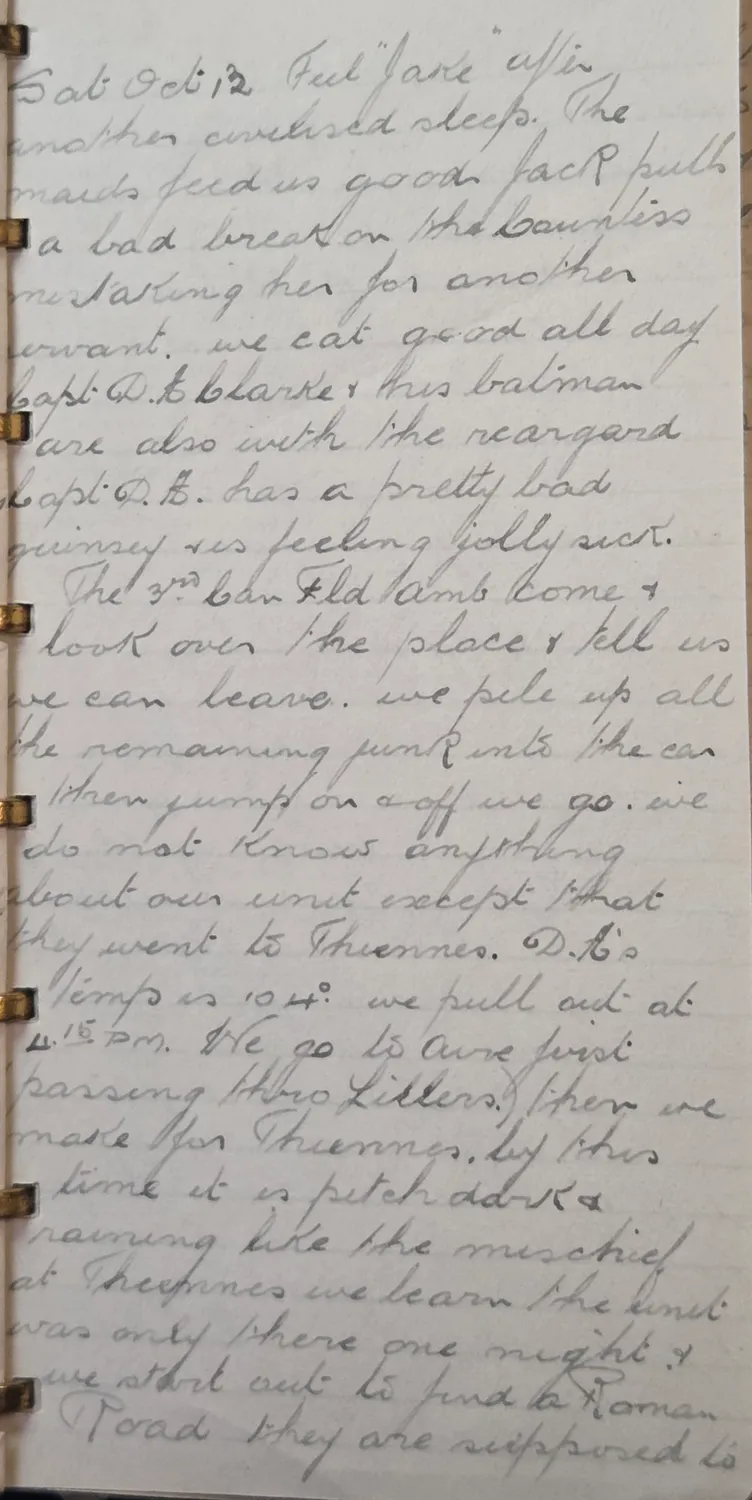 Sat Oct 13 Feel "Jake" after
another civilised sleep. The
maids feed us good Jack pulls
a bad break on the Countiss
mistaking her for another
servant. we eat good all day
Capt D.A Clarke & his batman
are also with the reargard
Capt D.A. has a pretty bad
quinsey & is feeling jolly sick.
The 3rd Can Fld Amb come &
look over the place & tell us
we can leave. we pile up all
the remaining junk into the car
then jump on & off we go. we
do not know anything
about our unit except that
they went to Thiennes. D.A's
Temp is 104°. we pull out at
4.15 PM. We go to Aire first
passing thro Lillers.) then we
make for Thiennes, by this
time it is pitch dark &
raining like the mischief
at Thiennes we learn the unit
was only there one night &
we start out to find a Roman
Road they are supposed to